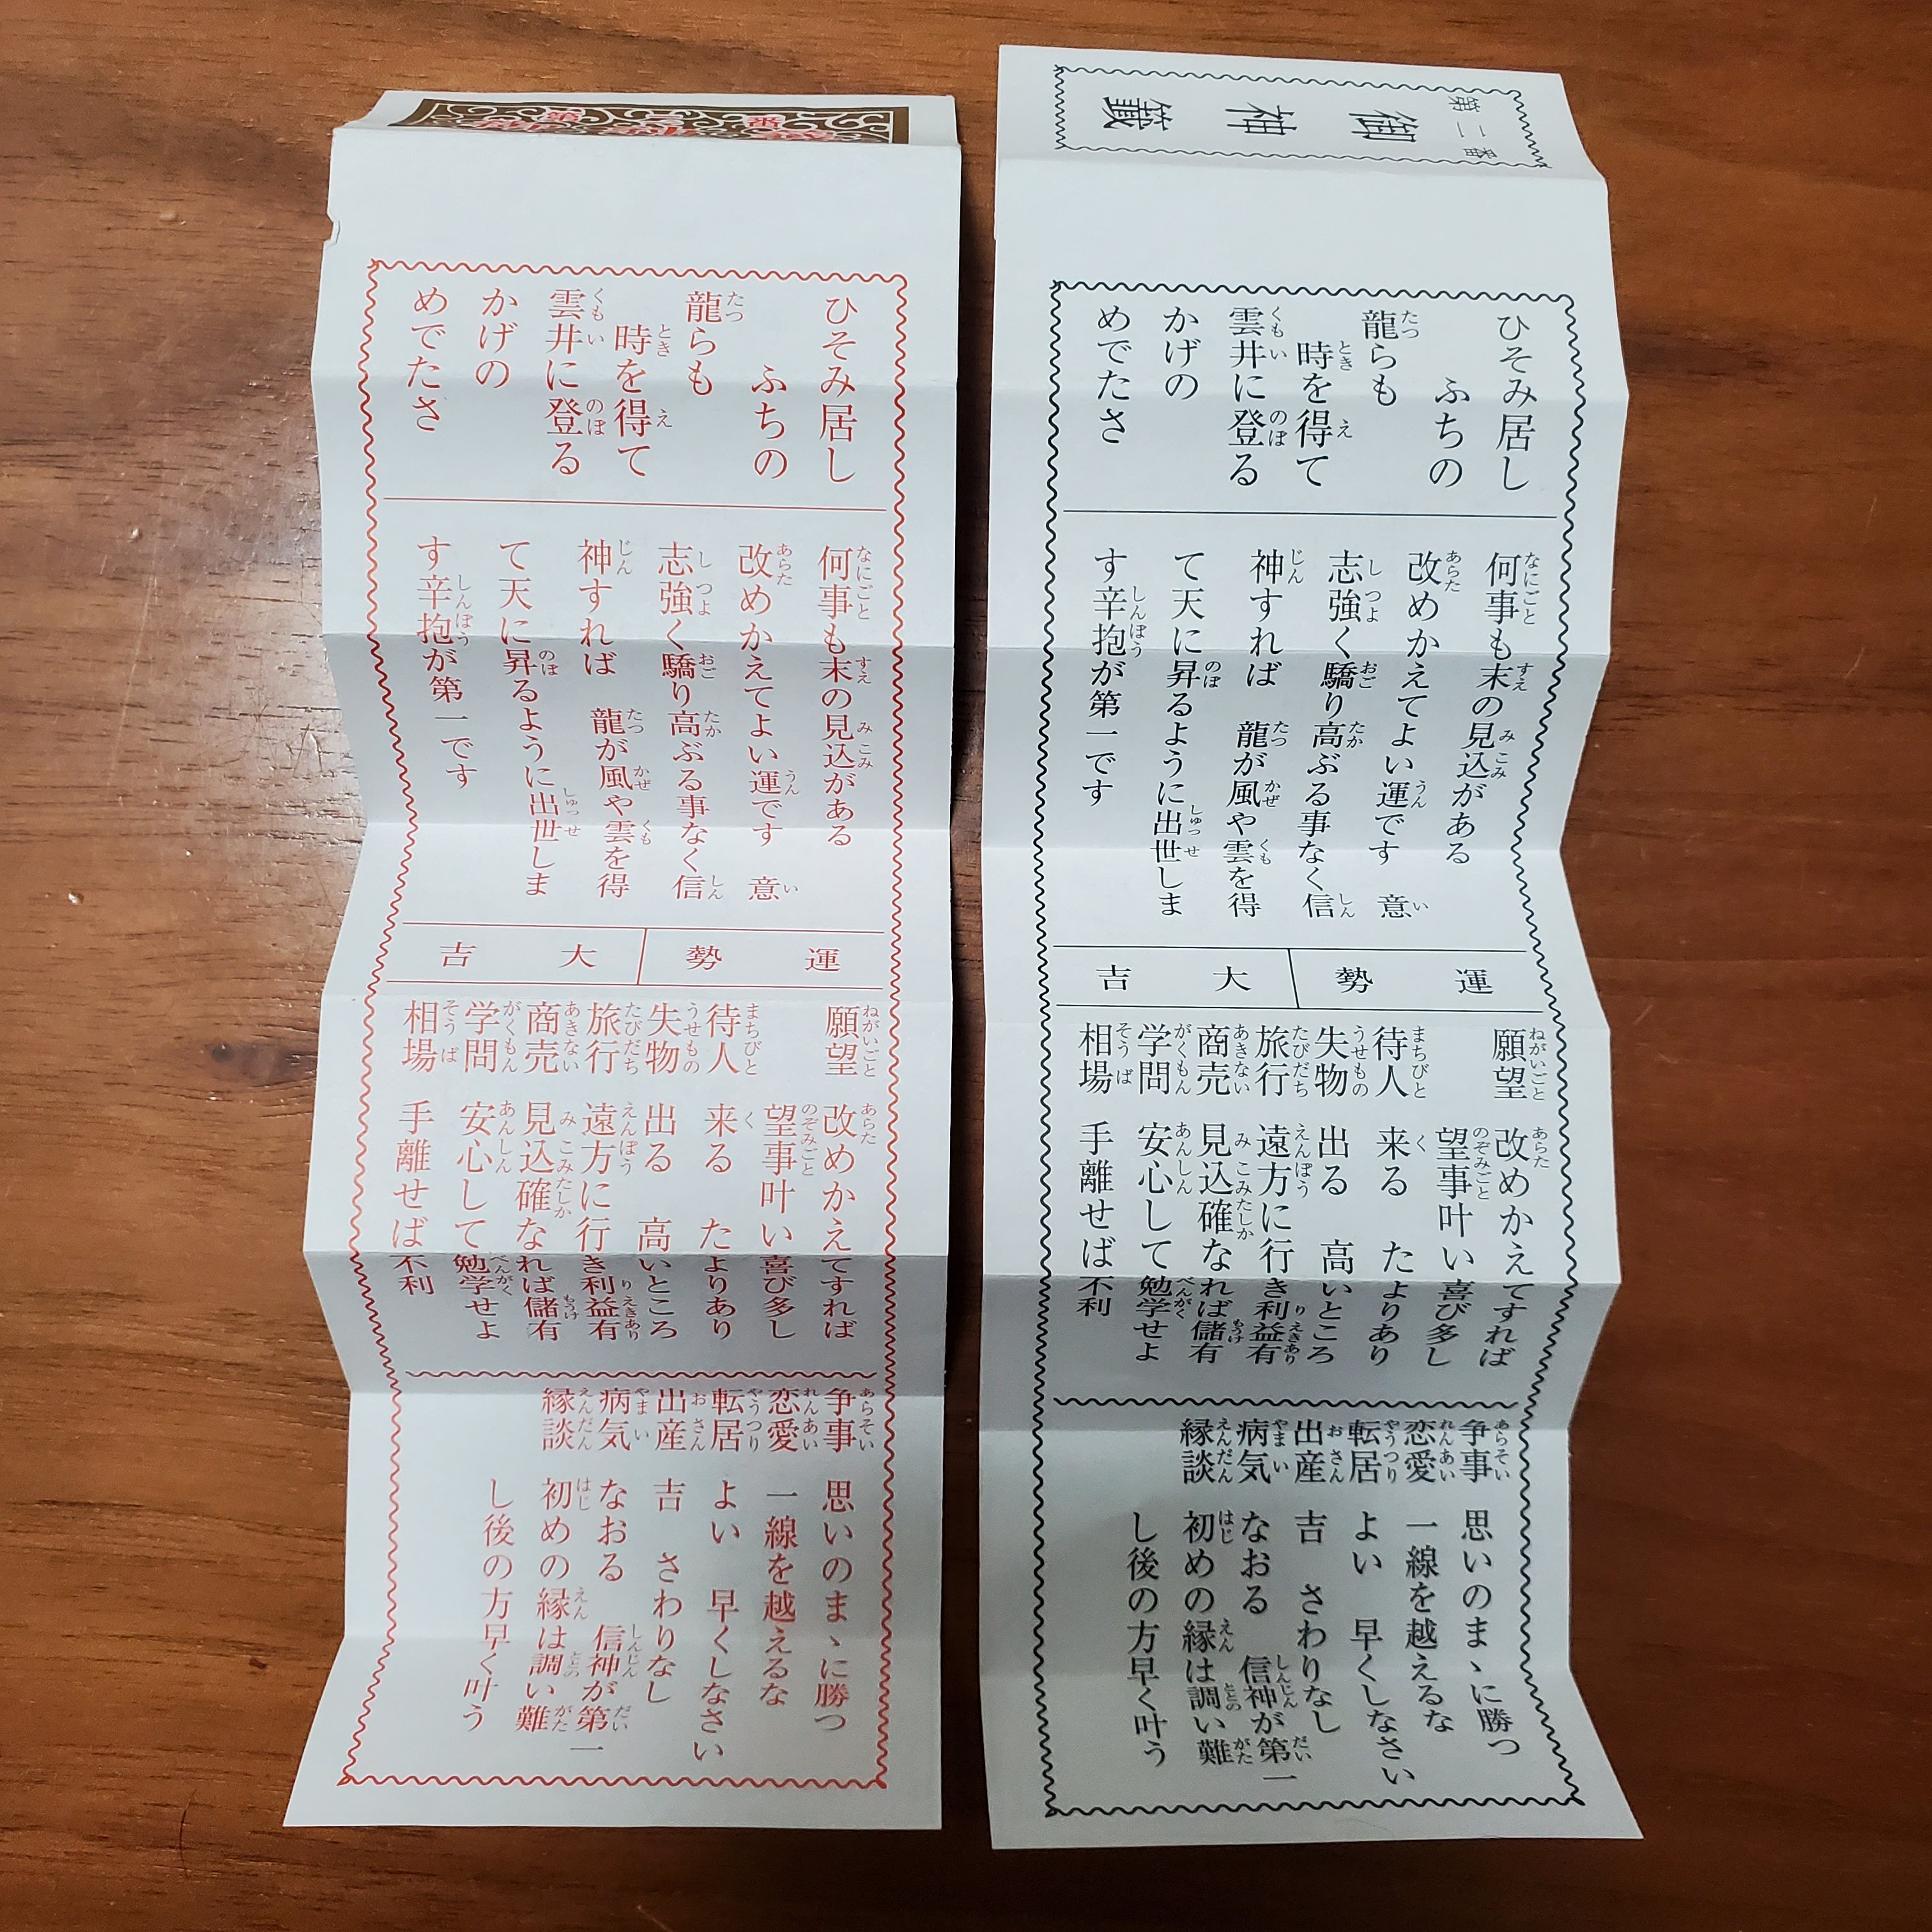 第二番
御神籤
ひそみ居し
ふちの
龍らも
時を得て
雲井に登る
かげの
めでたさ
何事も末の見込がある
改めかえてよい運です 意
志強く驕り高ぶる事なく信
神すれば 龍が風や雲を得
て天に昇るように出世しま
す辛抱が第一です
運勢 大吉
願望 改めかえてすれば
望事叶い喜び多し
待人 来る たよりあり
失物 出る 高いところ
旅行 遠方に行き利益有
商売 見込確なれば儲有
学問 安心して勉学せよ
相場 手離せば不利
争事 思いのまゝに勝つ
恋愛 一線を越えるな
転居 よい 早くしなさい
出産 吉 さわりなし
病気 なおる 信神が第一
縁談 初めの縁は調い難
し後の方早く叶う
第二番
ひそみ居し
ふちの
龍らも
時を得て
雲井に登る
かげの
めでたさ
何事も末の見込がある
改めかえてよい運です 意
志強く驕り高ぶる事なく信
神すれば 龍が風や雲を得
て天に昇るように出世しま
す辛抱が第一です
運勢 大吉
願望 改めかえてすれば
望事叶い喜び多し
待人 来る たよりあり
失物 出る 高いところ
旅行 遠方に行き利益有
商売 見込確なれば儲有
学問 安心して勉学せよ
相場 手離せば不利
争事 思いのまゝに勝つ
恋愛 一線を越えるな
転居 よい 早くしなさい
出産 吉 さわりなし
病気 なおる 信神が第一
縁談 初めの縁は調い難
し後の方早く叶う